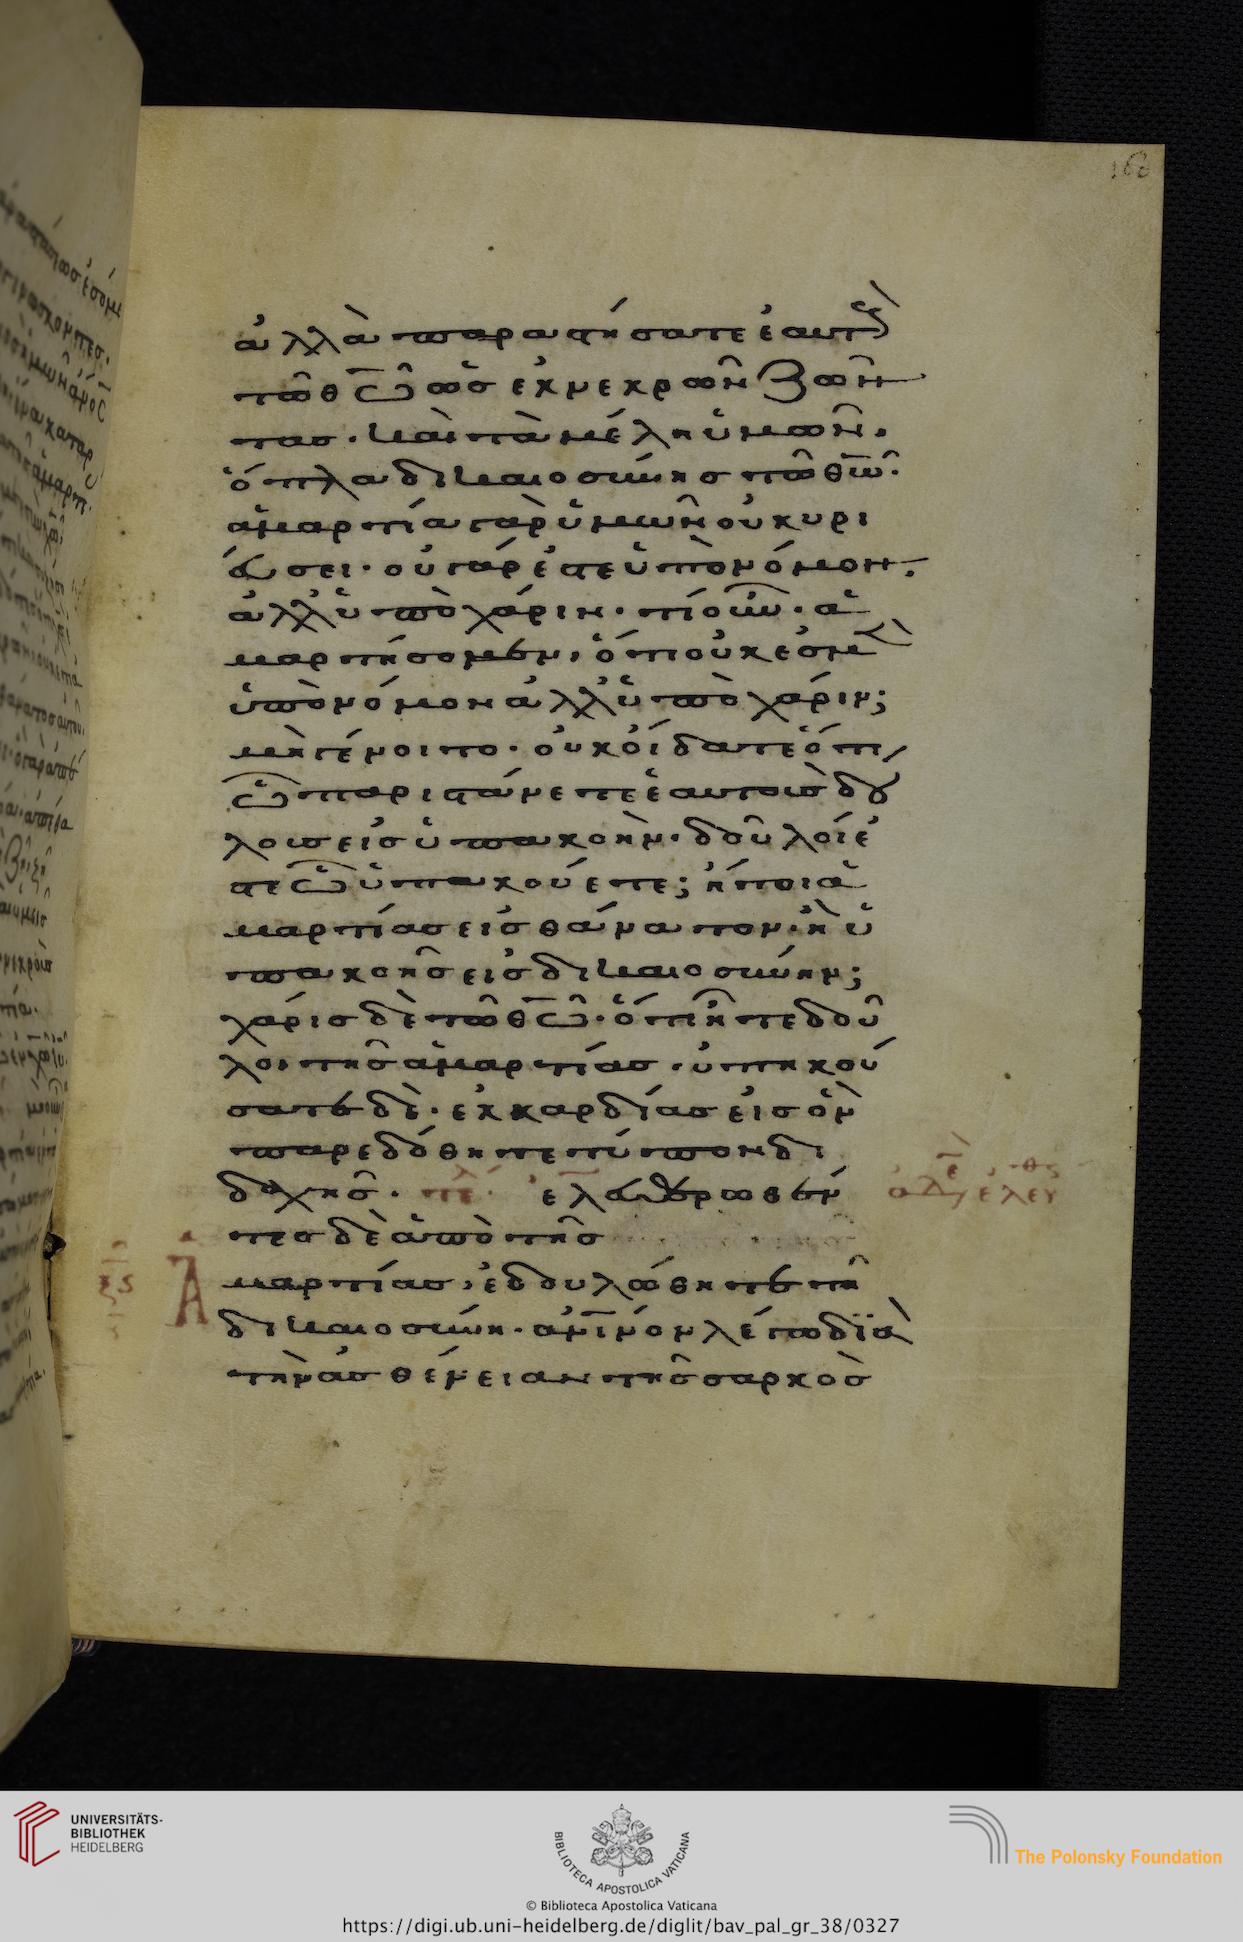 163
ἀλλὰ παραστήσατε ἑαυτοὺς
τῶ θ̅ῶ̅ ὡς ἐκ νεκρῶν ζῶν
τας · καὶ τὰ μέλη ὑμῶν ·
ὅπλα δικαιοσύνης τῶ θ̅ῶ̅ ·
ἁμαρτία γὰρ ὑμῶν οὐ κυρι
εύσει · οὐ γάρ ἐστε ὑπὸ νόμον ·
ἀλλ' ὑπὸ χάριν · τί οὖν · ἁ
μαρτήσομεν, ὅτι οὐκ ἐσμὲν
ὑπὸ νόμον ἀλλ' ὑπὸ χάριν;
μὴ γένοιτο · οὐκ οἴδατε ὅτι
ᾧ παριστάνετε ἑαυτοὺς δού
λους εἰς ὑπακοὴν · δοῦλοί ἐ
στε ᾧ ὑπακούετε; ἤτοι ἁ
μαρτίας εἰς θάνατον · ἢ ὑ
πακοῆς εἰς δικαιοσύνην;
χάρις δὲ τῶ θ̅ῶ̅ · ὅτι ἦτε δοῦ
λοι τῆς ἁμαρτίας · ὑπηκού
σατε δὲ · ἐκ καρδίας εἰς ὃν
παρεδόθητε τύπον δι
δαχῆς · τε ἐλευθερωθέν
τες δὲ ἀπὸ τῆς
Ἁμαρτίας, ἐδουλώθητε τῆ
δικαιοσύνη · ἀν̅ι̅νον λέγω διὰ
τὴν ἀσθένειαν τῆς σαρκὸς
UNIVERSITÄTS-
BIBLIOTHEK
HEIDELBERG
BIBLIOTECA APOSTOLICA VATICANA
The Polonsky Foundation
© Biblioteca Apostolica Vaticana
https://digi.ub.uni-heidelberg.de/diglit/bav_pal_gr_38/0327